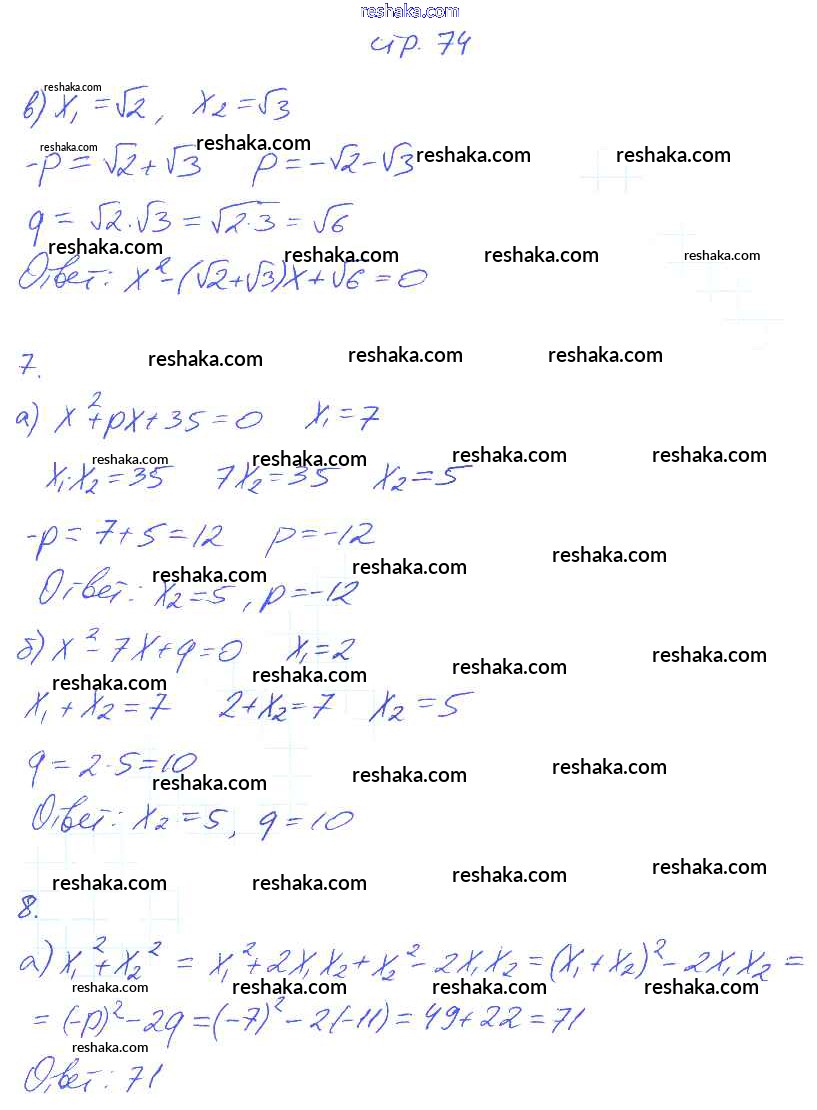 reshaka.com
стр. 74
reshaka.com
в) x₁ = √2, x₂ = √3
reshaka.com reshaka.com reshaka.com reshaka.com
-p = √2 + √3 p = -√2 - √3
q = √2 · √3 = √2·3 = √6
reshaka.com reshaka.com reshaka.com reshaka.com
Ответ: x² - (√2 + √3)x + √6 = 0
7. reshaka.com reshaka.com reshaka.com
а) x² + px + 35 = 0 x₁ = 7
reshaka.com reshaka.com reshaka.com reshaka.com
x₁·x₂ = 35 7x₂ = 35 x₂ = 5
-p = 7 + 5 = 12 p = -12
reshaka.com reshaka.com reshaka.com
Ответ: x₂ = 5, p = -12
б) x² - 7x + q = 0 x₁ = 2
reshaka.com reshaka.com reshaka.com reshaka.com
x₁ + x₂ = 7 2 + x₂ = 7 x₂ = 5
q = 2·5 = 10
reshaka.com reshaka.com reshaka.com
Ответ: x₂ = 5, q = 10
reshaka.com reshaka.com reshaka.com reshaka.com
8.
а) x₁² + x₂² = x₁² + 2x₁x₂ + x₂² - 2x₁x₂ = (x₁ + x₂)² - 2x₁x₂ =
reshaka.com reshaka.com reshaka.com reshaka.com
= (-p)² - 2q = (-7)² - 2(-11) = 49 + 22 = 71
reshaka.com
Ответ: 71